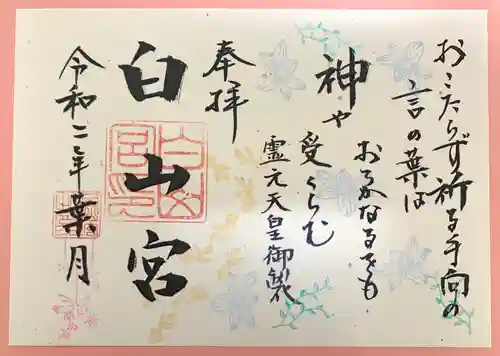 おこたらず祈る手向の
言の葉は
神や
おろかなるでも
受くらむ
霊元天皇御製
奉拝
白山宮
令和二年葉月